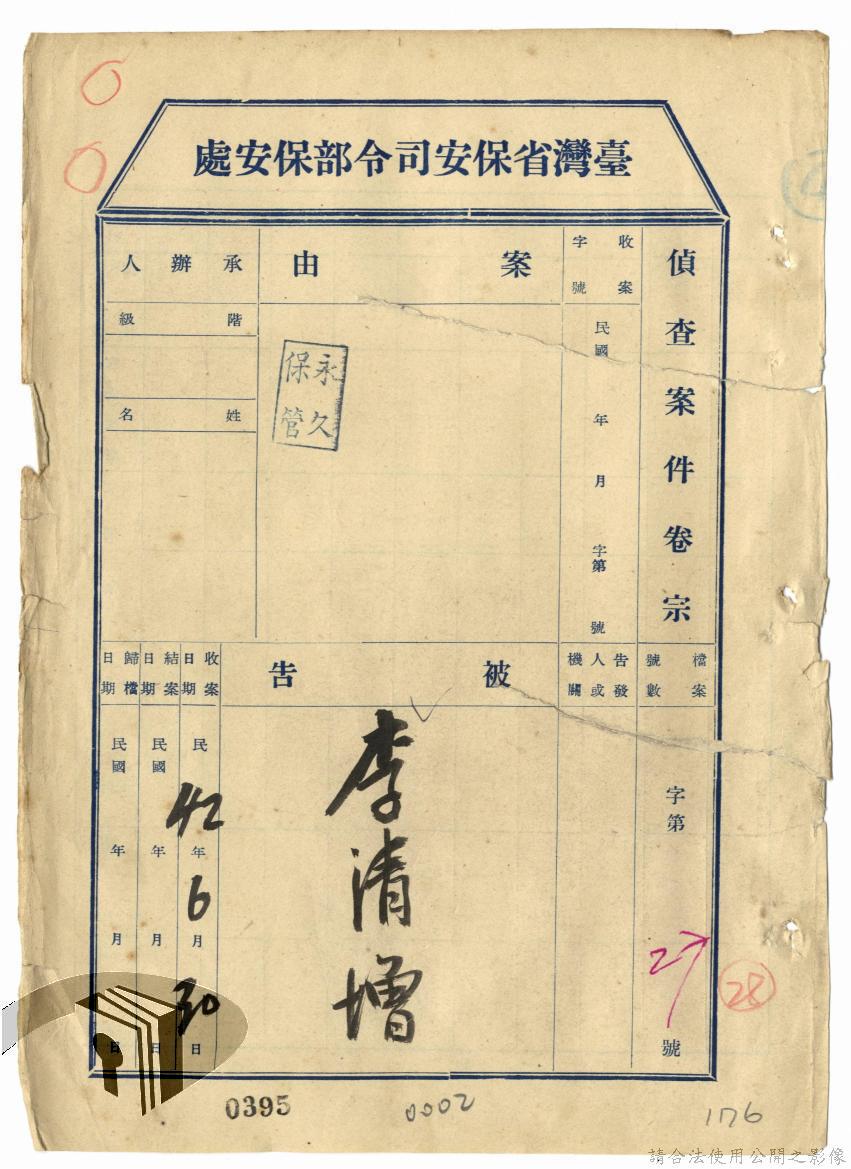 臺灣省保安司令部保安處
偵查案件卷宗
收案字號
民國 年 月 字第 號
案由
承辦人
階級
姓名
永久保管
檔案號數
字第 27 號
告發人或機關
被告
李清增
收案日期
民 42 年 6 月 30 日
結案日期
民國 年 月 日
歸檔日期
民國 年 月 日
28
0395
0002
176
請合法使用公開之影像